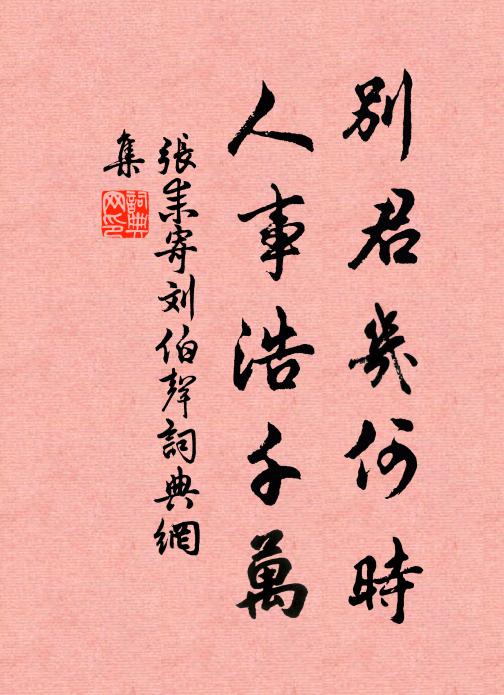 別君幾何時
人事浩千萬
張耒寄刘伯聲詞典網
集
詞典
网印